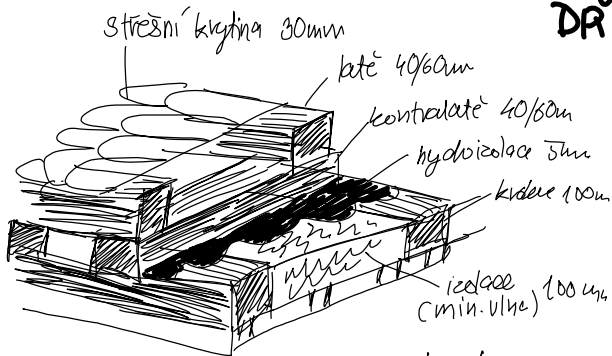 DŘ
střešní krytina 30mm
latě 40/60mm
kontralatě 40/60m
hydroizolace 5mm
krokve 100m
izolace
(min. vlna) 100mm